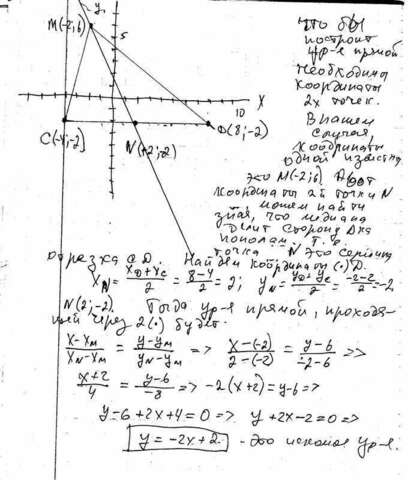 y
M(-2;6)
5
X
10
C(-4;-2)
N(+2;-2)
D(8;-2)
что бы
построит
ур-е прямой
необходимы
координаты
2х точек.
В нашем
случае,
координаты
одной известны
это M(-2;6) А вот
координаты 2й точки N
можем найти
зная, что медиана
делит сторону
пополам. Т.е.
точка N это середина
отрезка CD. Найдем координаты (·) D.
x_N = (x_D + x_C)/2 = (8-4)/2 = 2; y_N = (y_D + y_C)/2 = (-2-2)/2 = -2
N(2;-2) Тогда ур-е прямой, проходя-
щей через 2(·) будет.
(x-x_M)/(x_N-x_M) = (y-y_M)/(y_N-y_M) => (x-(-2))/(2-(-2)) = (y-6)/(-2-6) =>
(x+2)/4 = (y-6)/(-8) => -2(x+2) = y-6 =>
y-6+2x+4=0 => y+2x-2=0 =>
y = -2x+2. - это искомое ур-е.